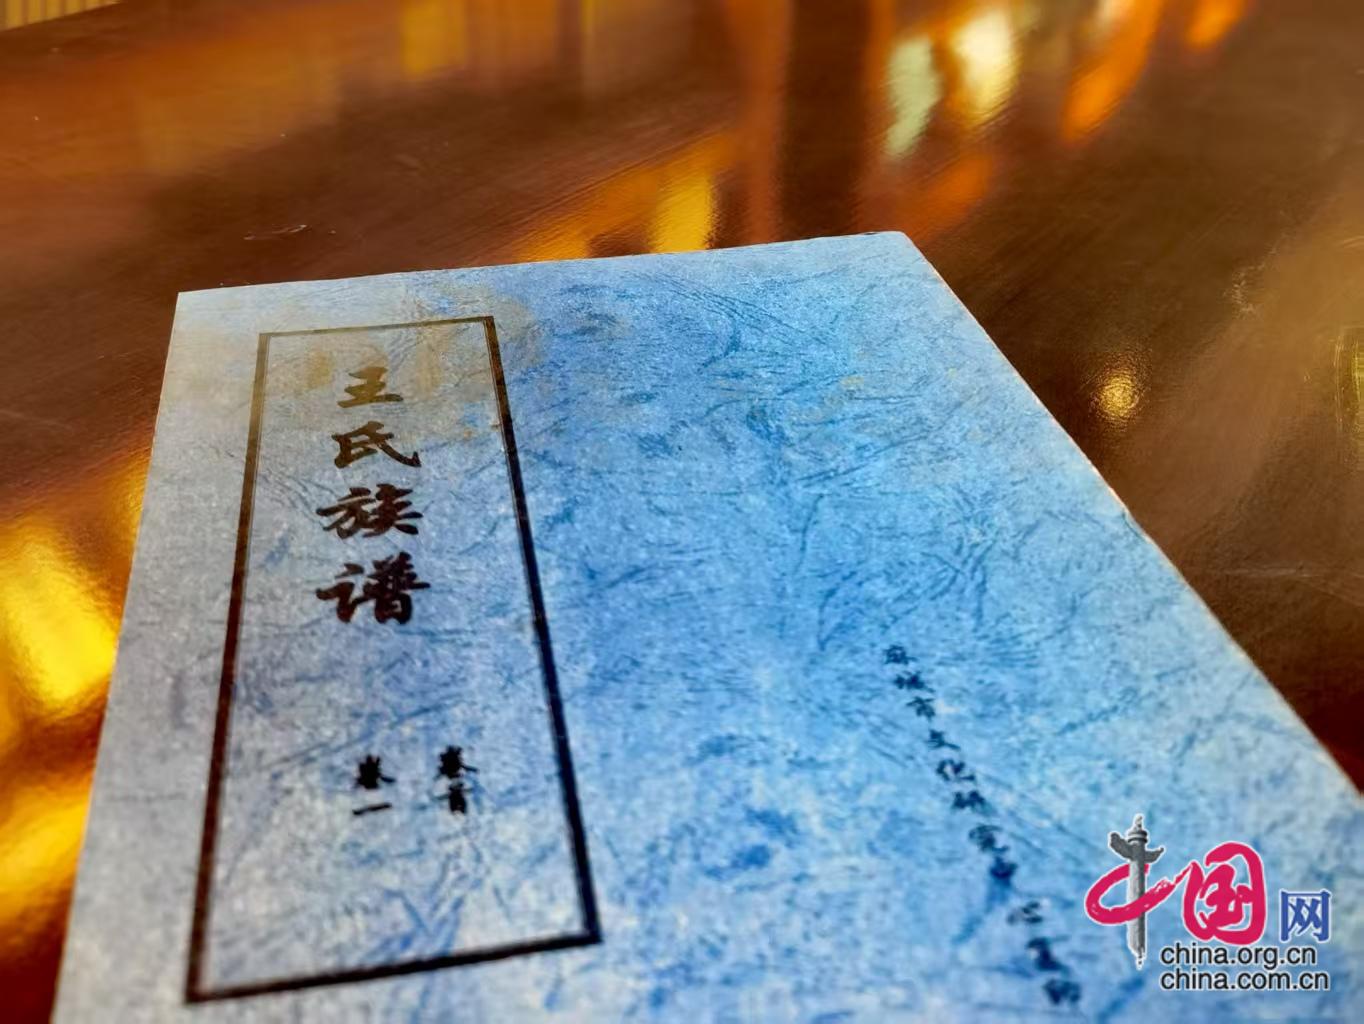 王氏族谱
卷首
卷一
麻城市文化研究中心复制
中国网
china.org.cn
china.com.cn